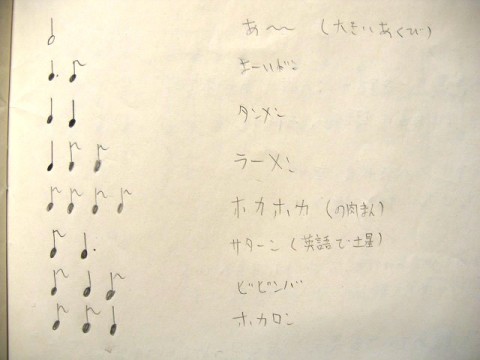 あ〜〜 (大きいあくび)
よーいドン
タンメン
ラーメン
ホカホカ (の肉まん)
サターン (英語で土星)
ビビンバ
ホカロン